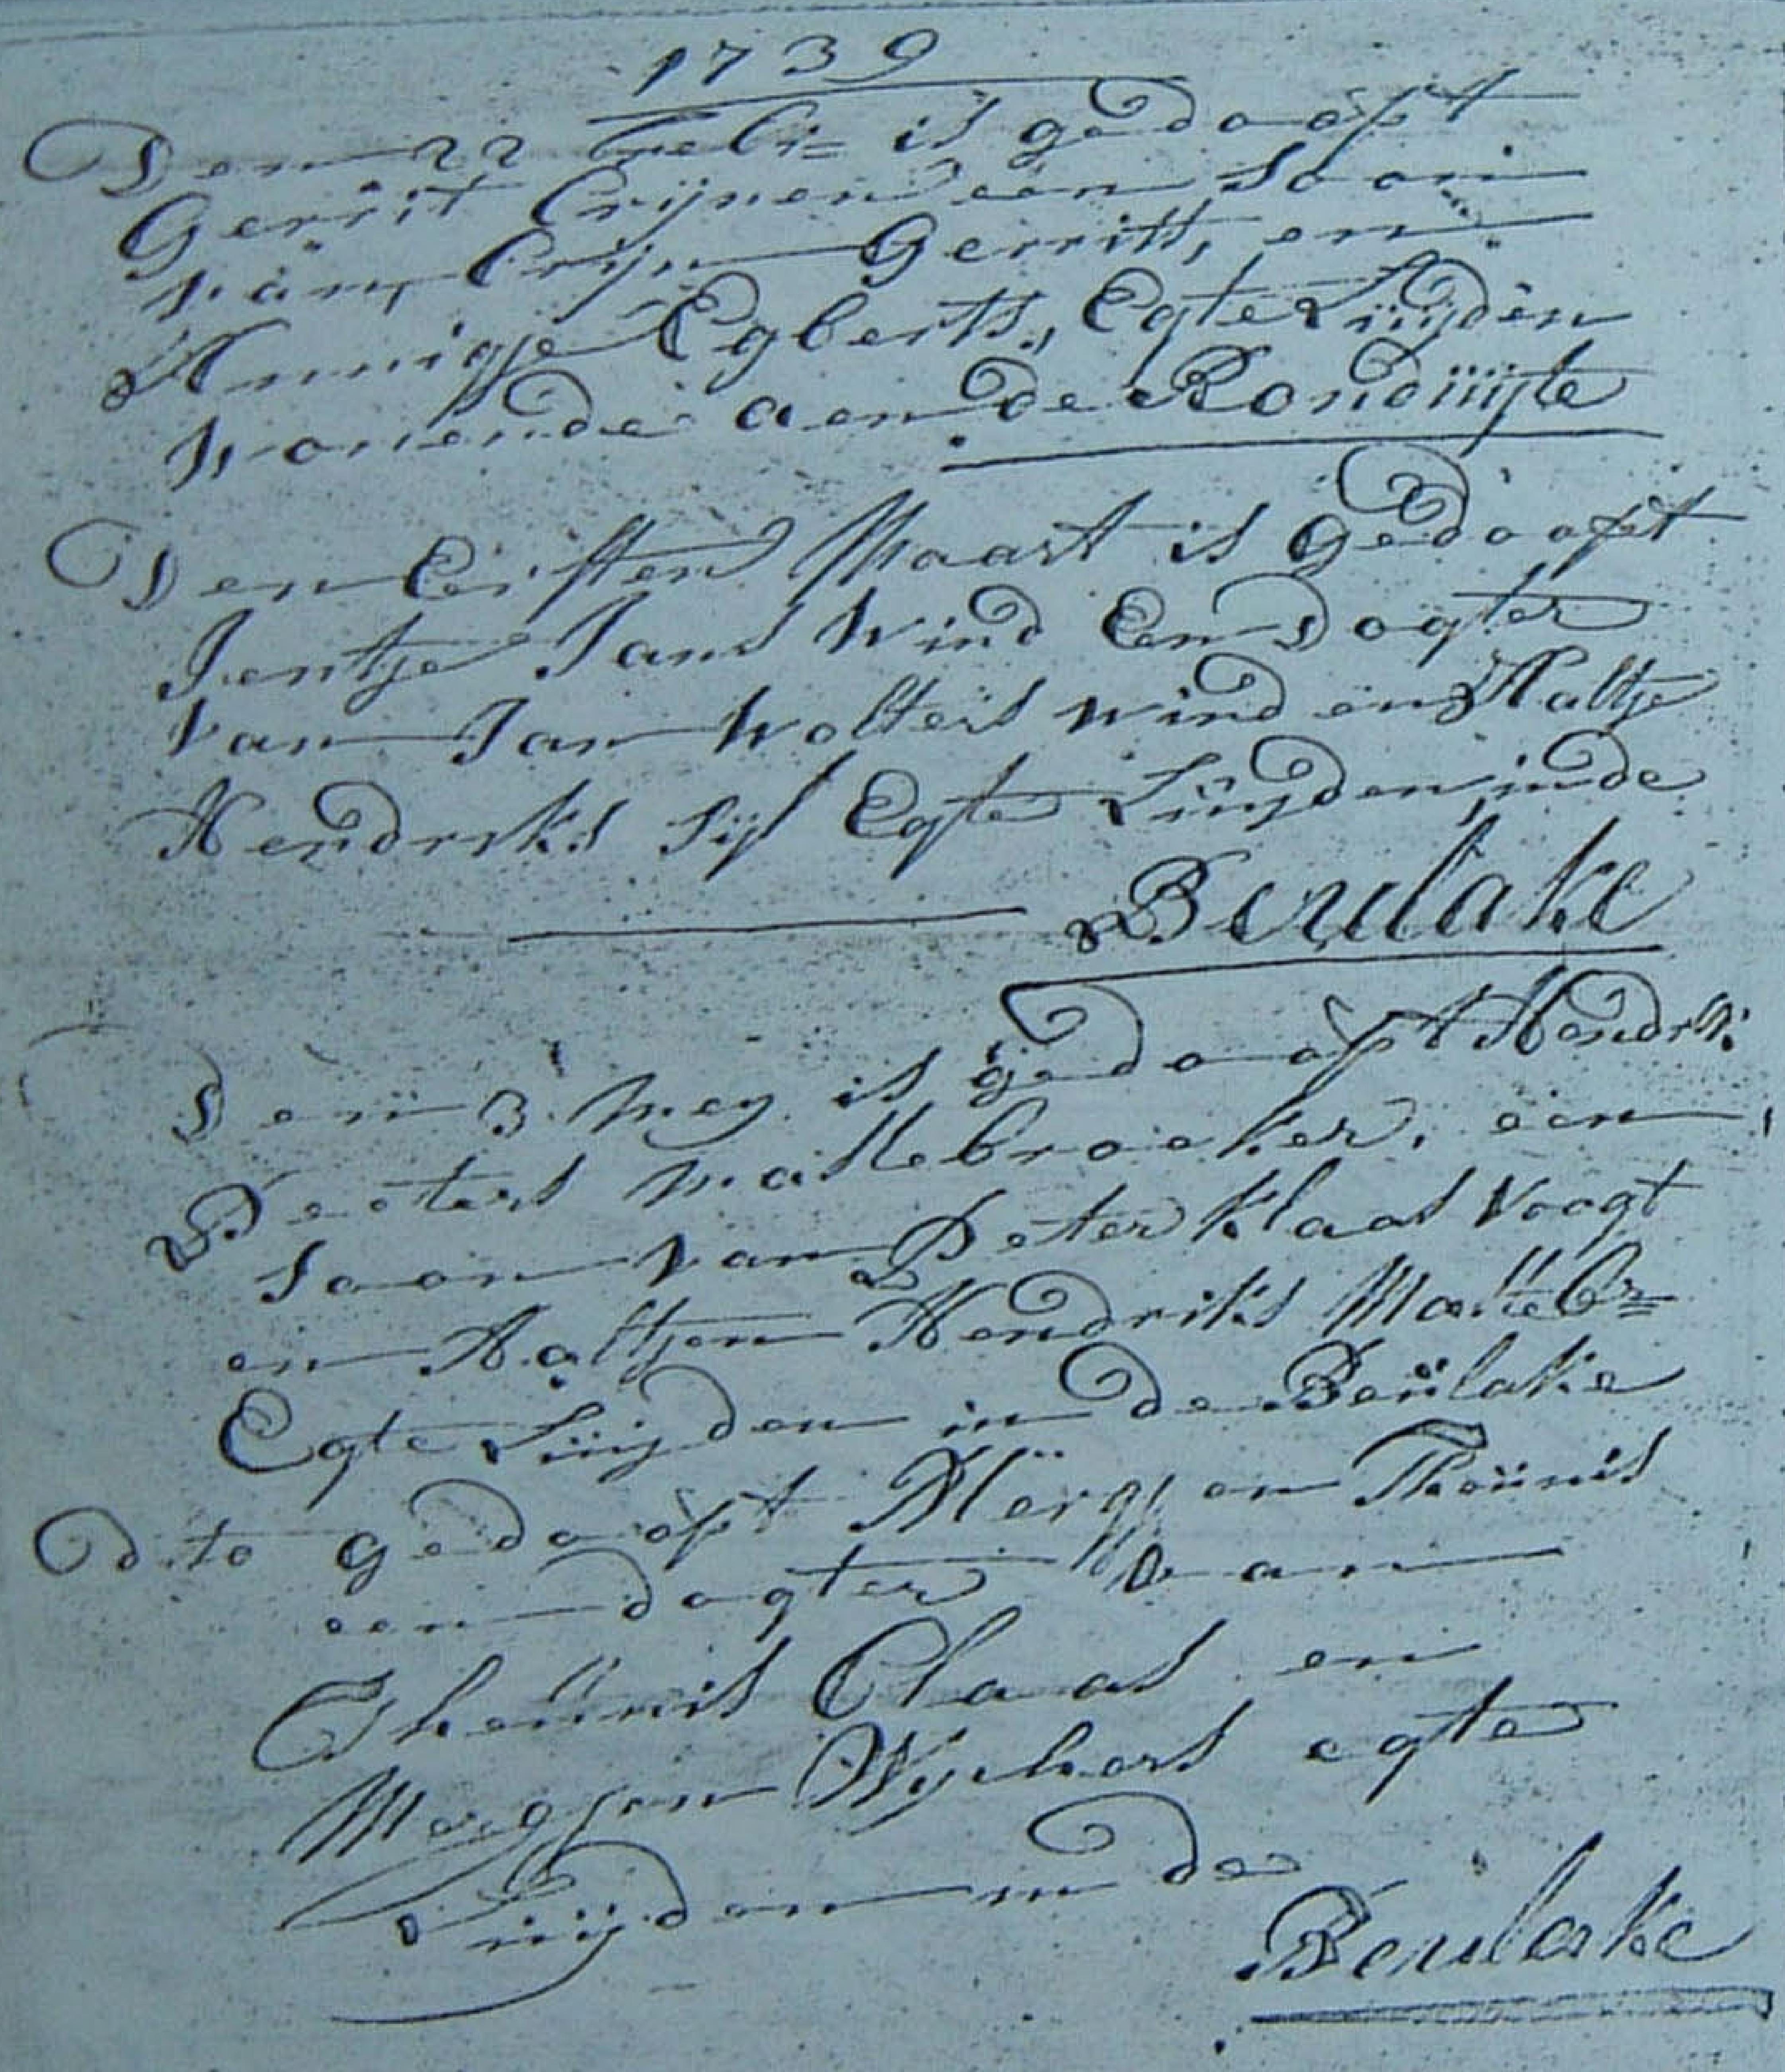 1739
Den 22 Febr= is gedoopt
Gerrit Crijnen een Soon
van, Crijn Gerrits, en
Annigje Egberts, Egte Luijden
wonende aen de Ronduijte
Den Eersten Maart is gedoopt
Jentje Jans Wind Een Dogter
van Jan Wolters Wind en Aaltje
Hendriks sijs Egte Luijden, in de
Beulake
Den 3 Mey is gedoopt Hendrk:
Peeters Mastebroeker, een
Soon van Peter Klaas Voogt
en Aaltjen Hendriks Mastebr=
Egte Luijden in de Beulake
dito gedoopt Mergjen Theunis
een dogter van
Theunis Claas en
Mergjen Wychers egte
Luijden in de
Beulake